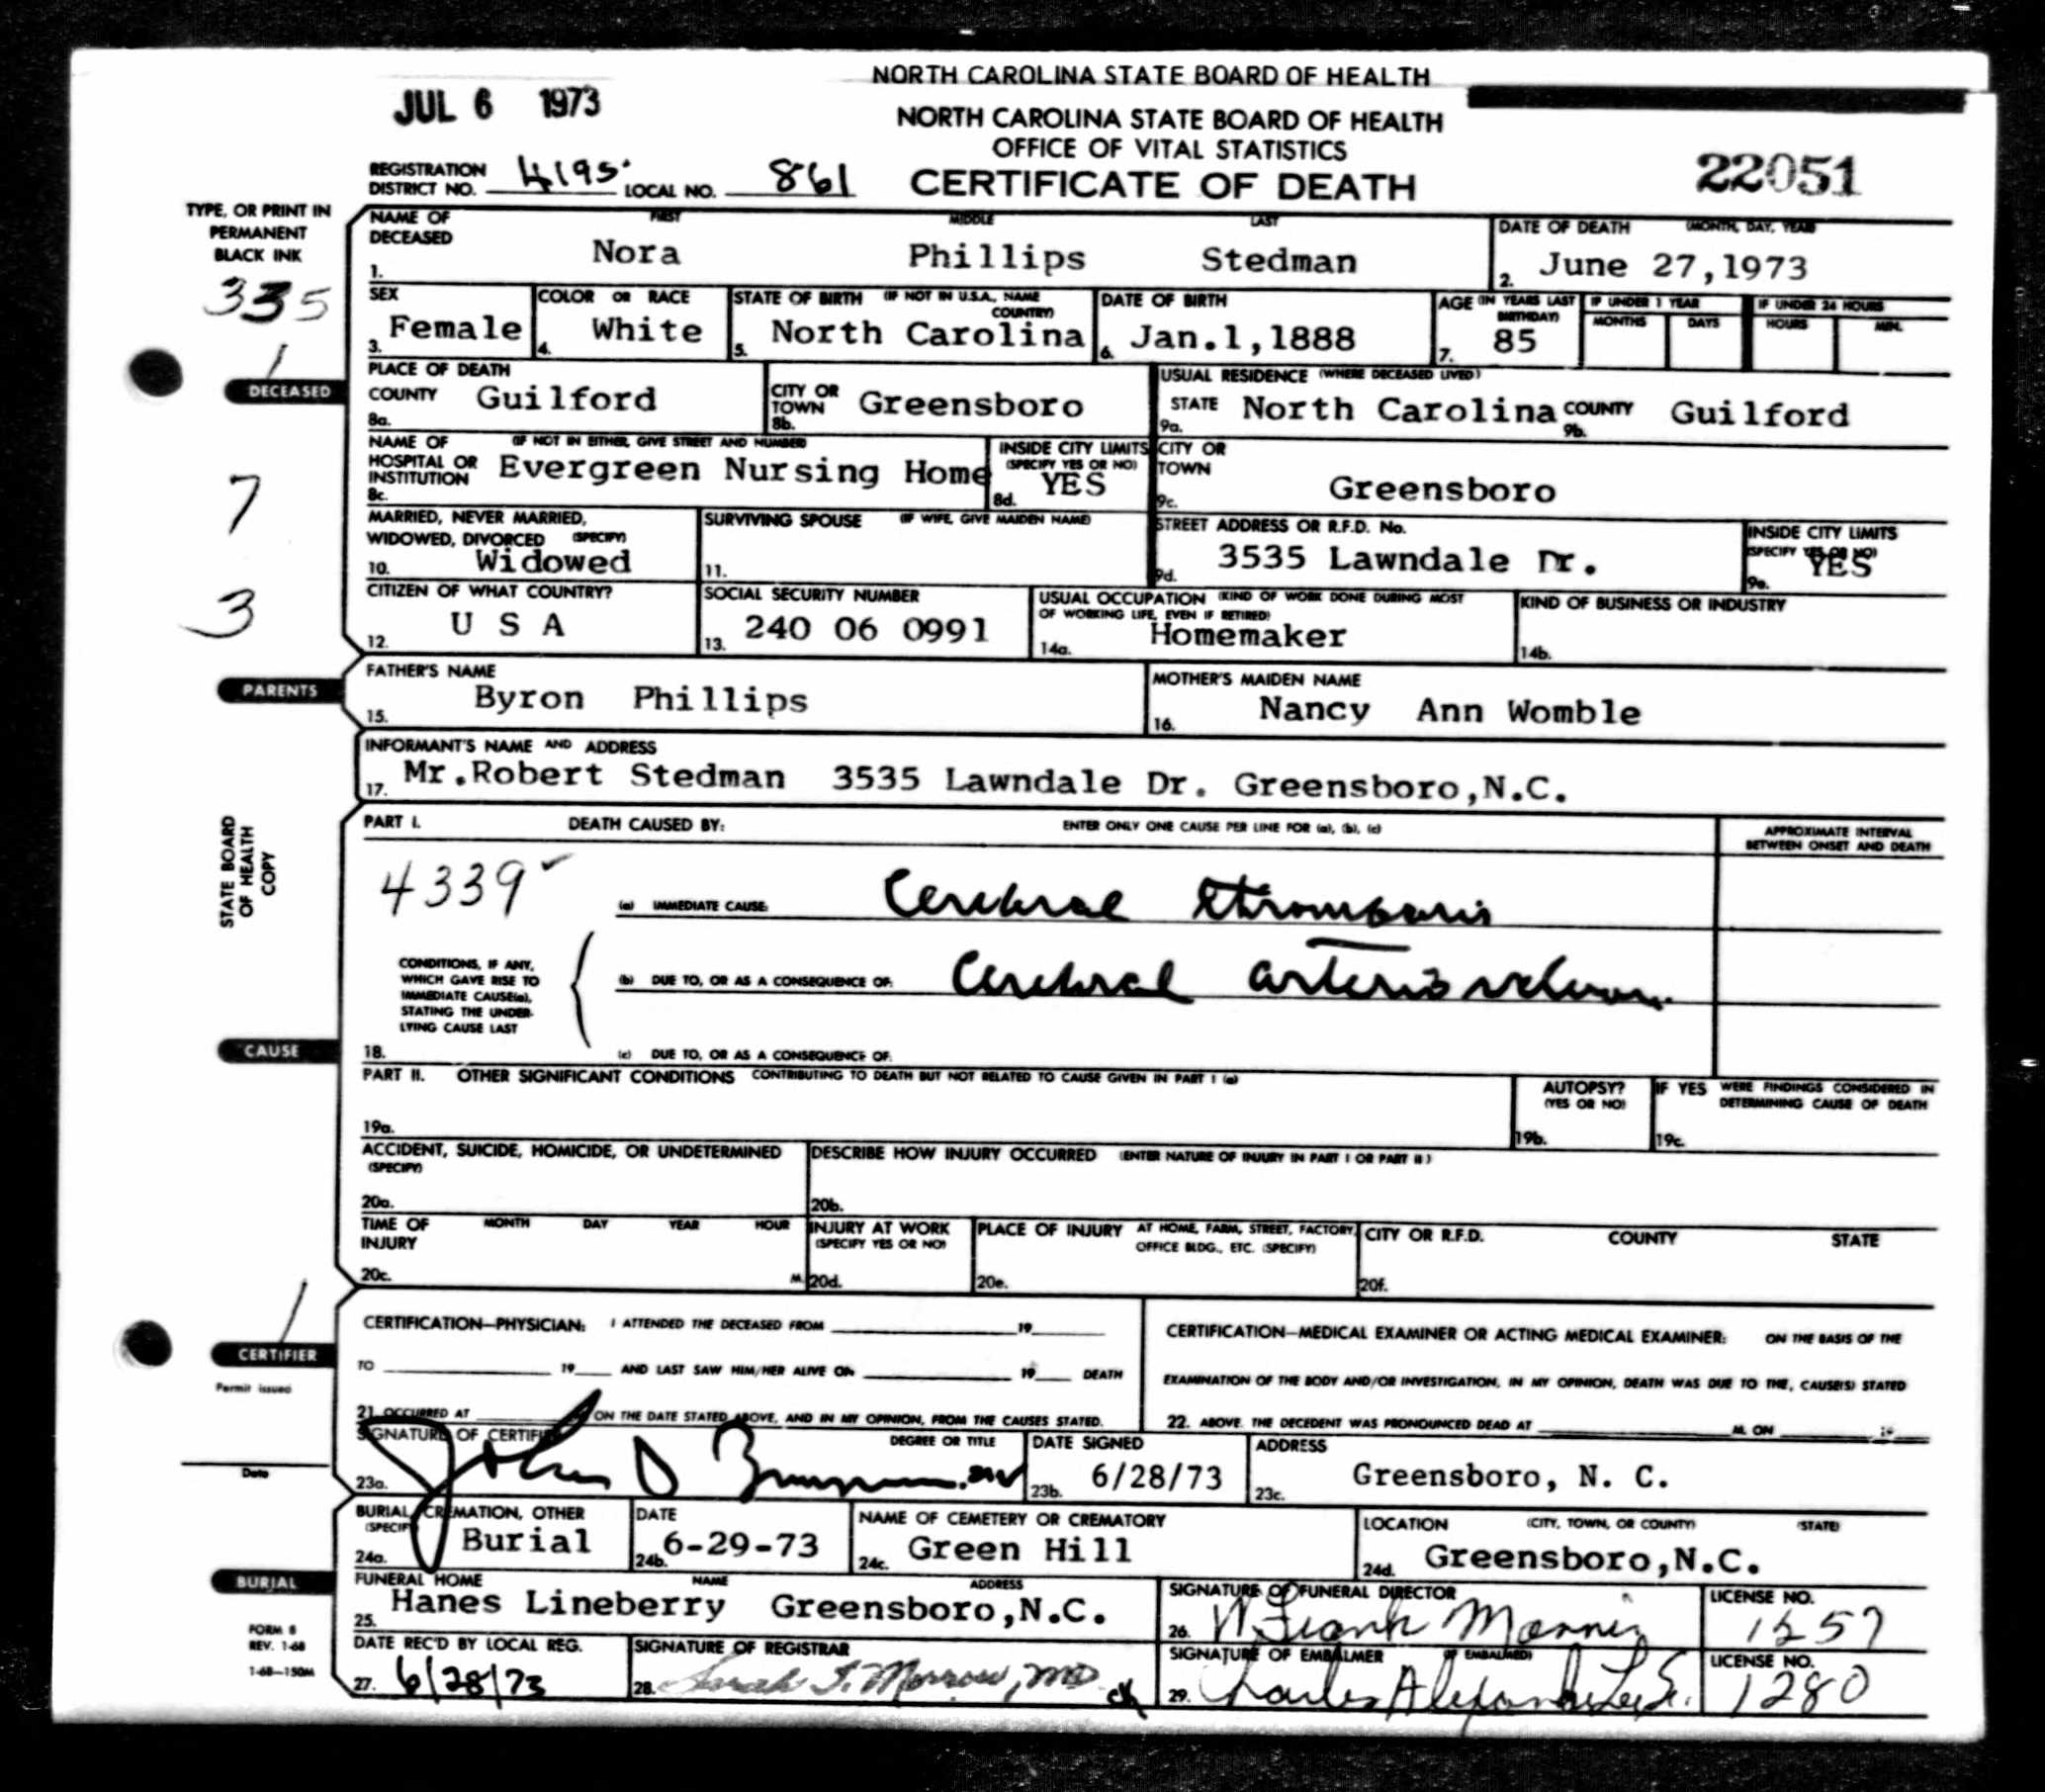 NORTH CAROLINA STATE BOARD OF HEALTH
JUL 6 1973
NORTH CAROLINA STATE BOARD OF HEALTH
OFFICE OF VITAL STATISTICS
CERTIFICATE OF DEATH
22051
REGISTRATION DISTRICT NO. 4195 LOCAL NO. 861
TYPE, OR PRINT IN
PERMANENT
BLACK INK
335
1
DECEASED
7
3
NAME OF DECEASED FIRST MIDDLE LAST
1. Nora Phillips Stedman
DATE OF DEATH (MONTH, DAY, YEAR)
2. June 27,1973
SEX
3. Female
COLOR OR RACE
4. White
STATE OF BIRTH (IF NOT IN U.S.A., NAME COUNTRY)
5. North Carolina
DATE OF BIRTH
6. Jan.1,1888
AGE (IN YEARS LAST BIRTHDAY)
7. 85
IF UNDER 1 YEAR
MONTHS DAYS
IF UNDER 24 HOURS
HOURS MIN.
PLACE OF DEATH
COUNTY Guilford
8a.
CITY OR TOWN Greensboro
8b.
USUAL RESIDENCE (WHERE DECEASED LIVED)
STATE North Carolina
9a.
COUNTY Guilford
9b.
NAME OF HOSPITAL OR INSTITUTION (IF NOT IN EITHER, GIVE STREET AND NUMBER)
8c. Evergreen Nursing Home
INSIDE CITY LIMITS (SPECIFY YES OR NO)
8d. YES
CITY OR TOWN
9c. Greensboro
MARRIED, NEVER MARRIED,
WIDOWED, DIVORCED (SPECIFY)
10. Widowed
SURVIVING SPOUSE (IF WIFE, GIVE MAIDEN NAME)
11.
STREET ADDRESS OR R.F.D. No.
9d. 3535 Lawndale Dr.
INSIDE CITY LIMITS
(SPECIFY YES OR NO)
9e. YES
CITIZEN OF WHAT COUNTRY?
12. U S A
SOCIAL SECURITY NUMBER
13. 240 06 0991
USUAL OCCUPATION (KIND OF WORK DONE DURING MOST
OF WORKING LIFE, EVEN IF RETIRED)
14a. Homemaker
KIND OF BUSINESS OR INDUSTRY
14b.
PARENTS
FATHER'S NAME
15. Byron Phillips
MOTHER'S MAIDEN NAME
16. Nancy Ann Womble
INFORMANT'S NAME AND ADDRESS
17. Mr.Robert Stedman 3535 Lawndale Dr. Greensboro,N.C.
STATE BOARD
OF HEALTH
COPY
PART I. DEATH CAUSED BY: ENTER ONLY ONE CAUSE PER LINE FOR (a), (b), (c)
APPROXIMATE INTERVAL
BETWEEN ONSET AND DEATH
4339
(a) IMMEDIATE CAUSE: Cerebral thrombosis
CONDITIONS, IF ANY,
WHICH GAVE RISE TO
IMMEDIATE CAUSE(a),
STATING THE UNDER-
LYING CAUSE LAST
(b) DUE TO, OR AS A CONSEQUENCE OF: Cerebral arteriosclerosis
CAUSE
18. (c) DUE TO, OR AS A CONSEQUENCE OF:
PART II. OTHER SIGNIFICANT CONDITIONS CONTRIBUTING TO DEATH BUT NOT RELATED TO CAUSE GIVEN IN PART I (a)
19a.
AUTOPSY?
(YES OR NO)
19b.
IF YES WERE FINDINGS CONSIDERED IN
DETERMINING CAUSE OF DEATH
19c.
ACCIDENT, SUICIDE, HOMICIDE, OR UNDETERMINED
(SPECIFY)
20a.
DESCRIBE HOW INJURY OCCURRED (ENTER NATURE OF INJURY IN PART I OR PART II)
20b.
TIME OF INJURY MONTH DAY YEAR HOUR
20c. M.
INJURY AT WORK
(SPECIFY YES OR NO)
20d.
PLACE OF INJURY AT HOME, FARM, STREET, FACTORY,
OFFICE BLDG., ETC. (SPECIFY)
20e.
CITY OR R.F.D. COUNTY STATE
20f.
1
CERTIFIER
Permit issued
Date
CERTIFICATION—PHYSICIAN: I ATTENDED THE DECEASED FROM 19
TO 19 AND LAST SAW HIM/HER ALIVE ON 19 DEATH
21. OCCURRED AT ON THE DATE STATED ABOVE, AND IN MY OPINION, FROM THE CAUSES STATED.
CERTIFICATION—MEDICAL EXAMINER OR ACTING MEDICAL EXAMINER: ON THE BASIS OF THE
EXAMINATION OF THE BODY AND/OR INVESTIGATION, IN MY OPINION, DEATH WAS DUE TO THE, CAUSE(S) STATED
22. ABOVE. THE DECEDENT WAS PRONOUNCED DEAD AT M. ON 19
SIGNATURE OF CERTIFIER DEGREE OR TITLE
23a. John D
DATE SIGNED
23b. 6/28/73
ADDRESS
23c. Greensboro, N. C.
BURIAL, CREMATION, OTHER
(SPECIFY)
24a. Burial
DATE
24b. 6-29-73
NAME OF CEMETERY OR CREMATORY
24c. Green Hill
LOCATION (CITY, TOWN, OR COUNTY) (STATE)
24d. Greensboro,N.C.
BURIAL
FUNERAL HOME NAME ADDRESS
25. Hanes Lineberry Greensboro,N.C.
SIGNATURE OF FUNERAL DIRECTOR
26. W Frank
LICENSE NO.
1557
FORM 8
REV. 1-68
1-68—150M
DATE REC'D BY LOCAL REG.
27. 6/28/73
SIGNATURE OF REGISTRAR
28. Sarah T. Morrow, MD
SIGNATURE OF EMBALMER (IF EMBALMED)
29. Charles Alexander Lee Sr.
LICENSE NO.
1280